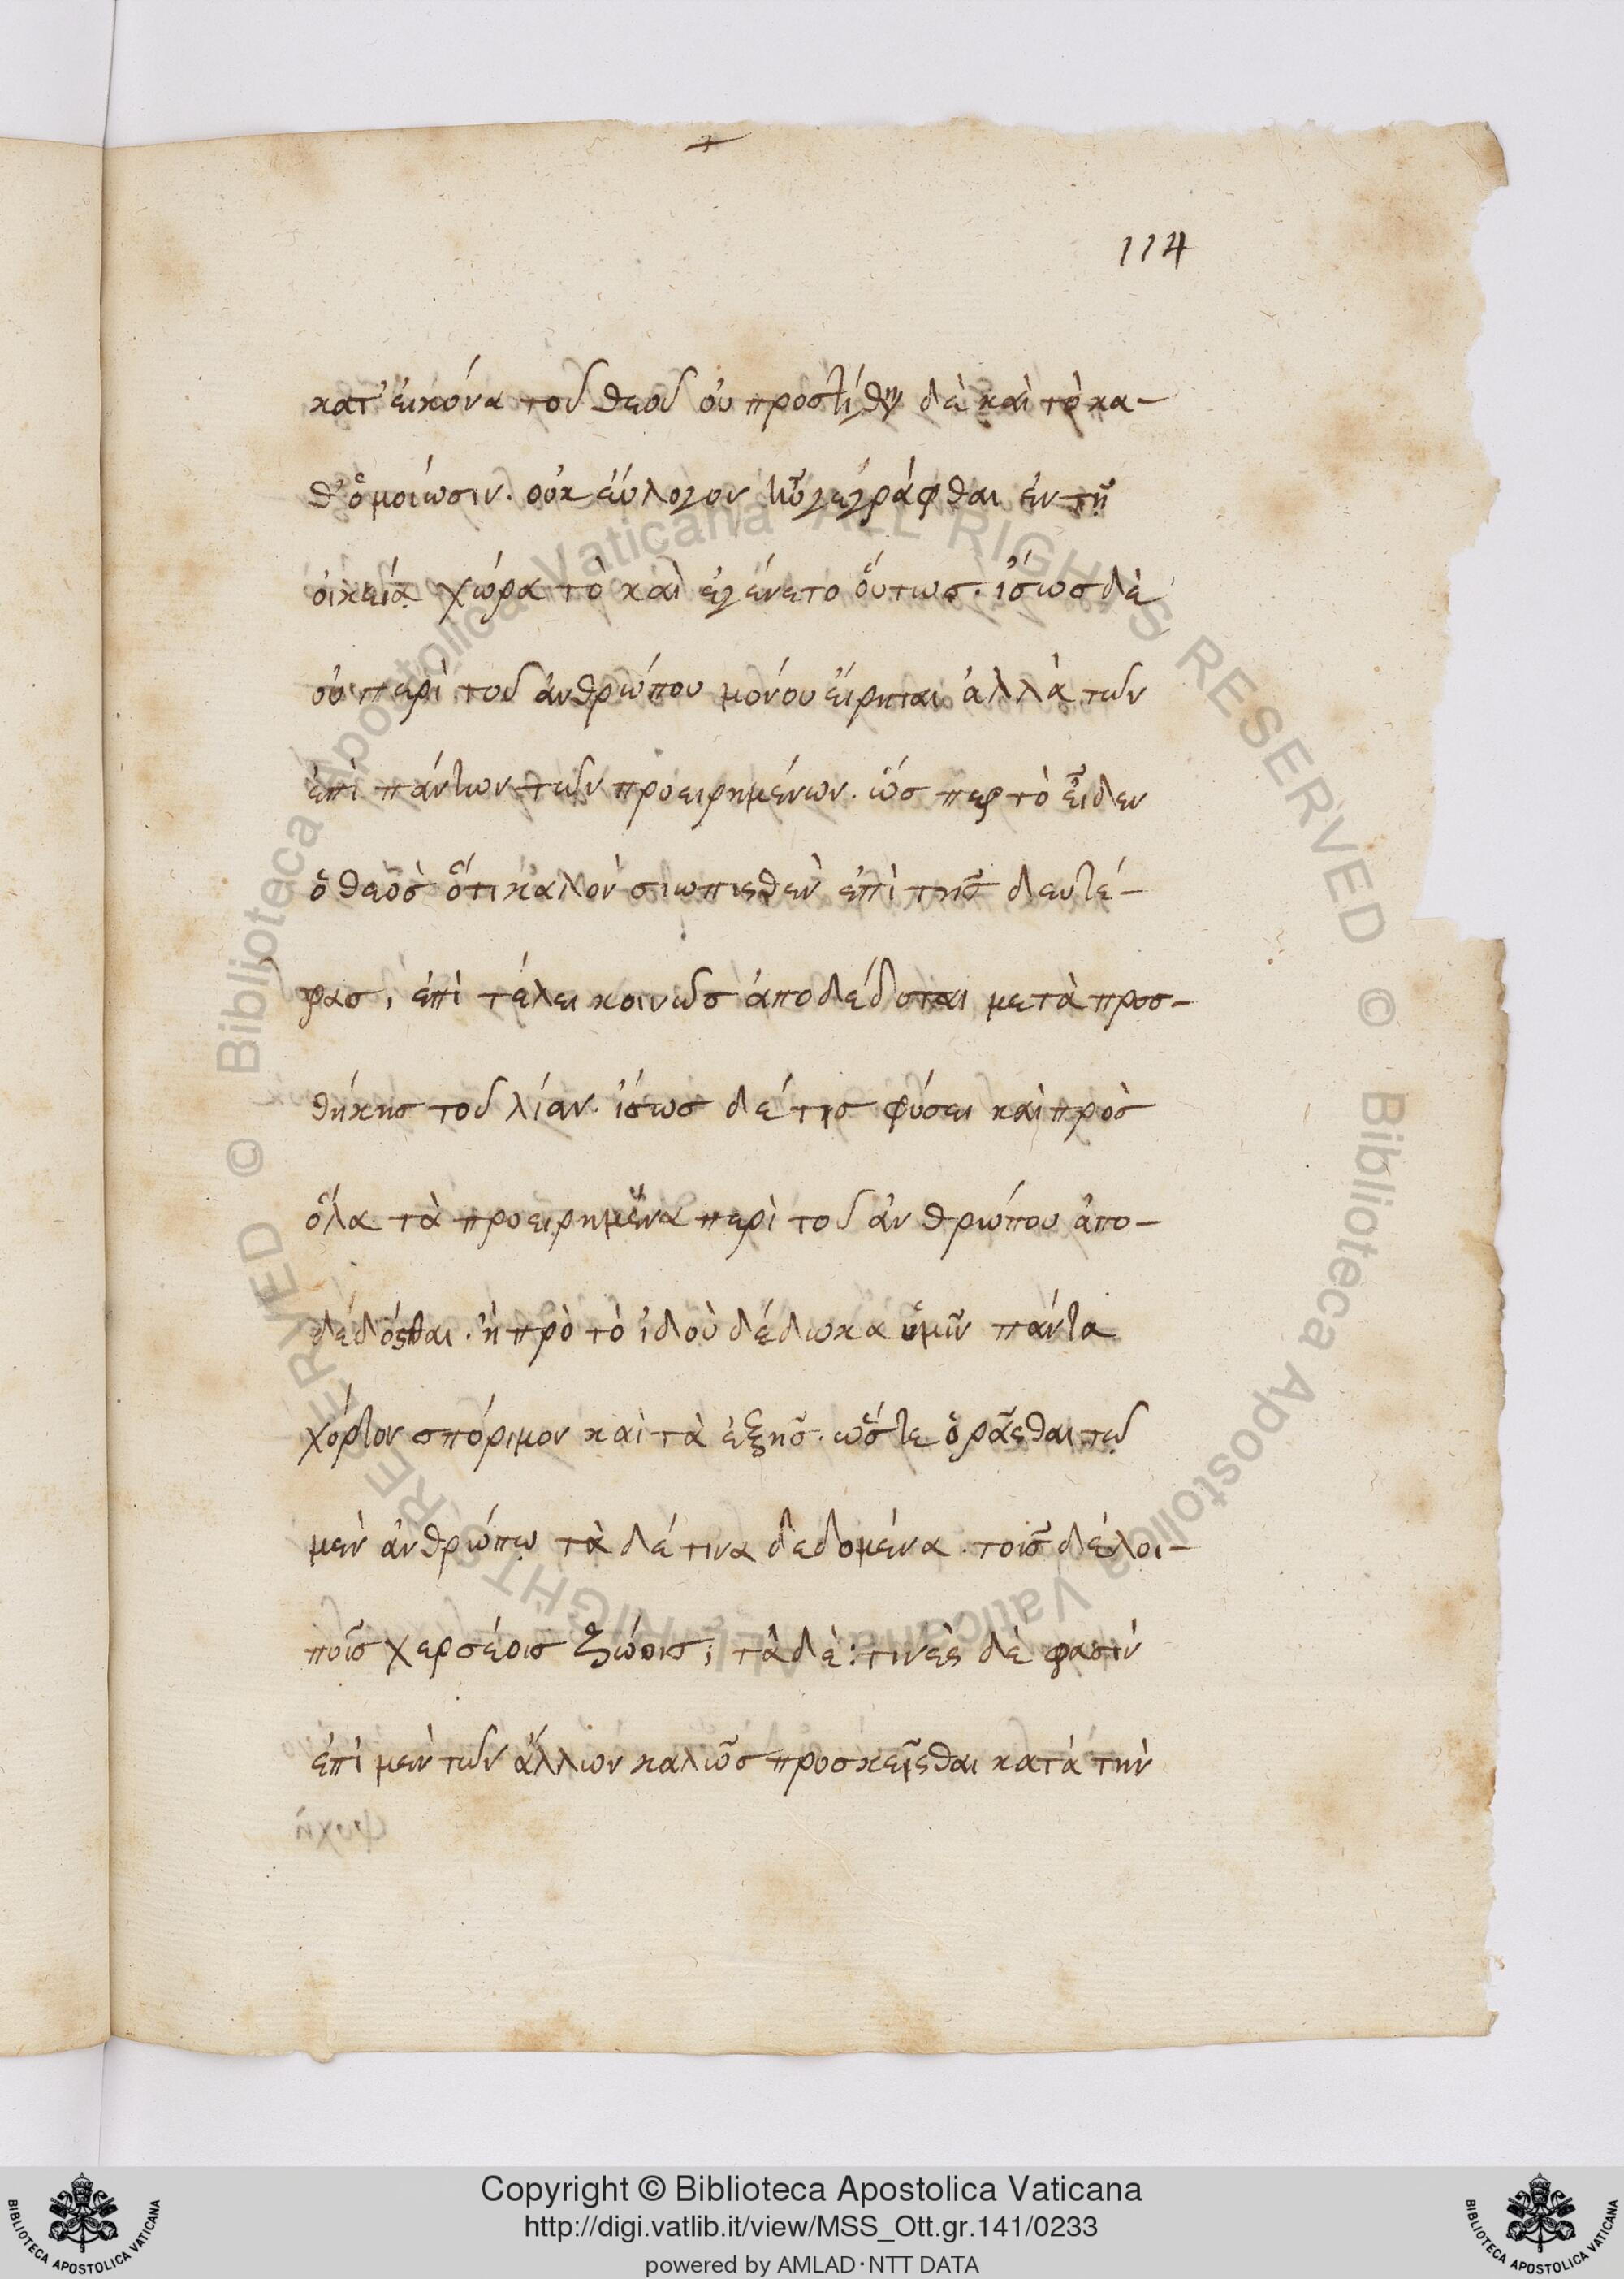 114
κατ' εἰκόνα τοῦ θεοῦ οὐ προστίθην δὲ καὶ τὸ κα-
θ' ὁμοίωσιν. οὐκ εὔλογον ἦν γεγράφθαι ἐν τῇ
οἰκείᾳ χώρα τὸ καὶ ἐγένετο οὕτως. ἴσως δὲ
οὐ περὶ τοῦ ἀνθρώπου μόνου εἴρηται ἀλλὰ τῶν
ἐπὶ πάντων τῶν προειρημένων. ὥσπερ τὸ εἶδεν
ὁ θεὸς ὅτι καλὸν σιωπισθὲν ἐπὶ τῆς δευτέ-
ρας, ἐπὶ τέλει κοινῶς ἀποδέδοται μετὰ προσ-
θήκης τοῦ λίαν. ἴσως δέ τις φύσει καὶ πρὸς
ὅλα τὰ προειρημένα περὶ τοῦ ἀνθρώπου ἀπο-
δεδόσθαι. ἢ πρὸ τὸ ἰδοὺ δέδωκα ὑμῖν πάντα
χόρτον σπόριμον καὶ τὰ ἑξῆς. ὥστε ὁρᾶσθαι τῷ
μὲν ἀνθρώπῳ τὰ δέ τινα δεδομένα. τοῖς δὲ λοι-
ποῖς χερσέοις ζώοις, τὰ δὲ: τινὲς δέ φασιν
ἐπὶ μὲν τῶν ἄλλων καλῶς προσκεῖσθαι κατὰ τὴν
Copyright © Biblioteca Apostolica Vaticana
http://digi.vatlib.it/view/MSS_Ott.gr.141/0233
powered by AMLAD·NTT DATA
BIBLIOTECA APOSTOLICA VATICANA
BIBLIOTECA APOSTOLICA VATICANA
© Biblioteca Apostolica Vaticana ALL RIGHTS RESERVED © Biblioteca Apostolica Vaticana ALL RIGHTS RESERVED